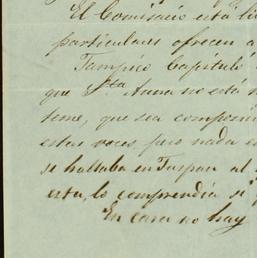 El Comisario está
particulares ofrecen a
Tampico Capituló
que Sta Anna no está
teme, que sea
estas voces, pero nada e
se hallaba en Tuspan al
esta, lo comprendia si
En casa no hay